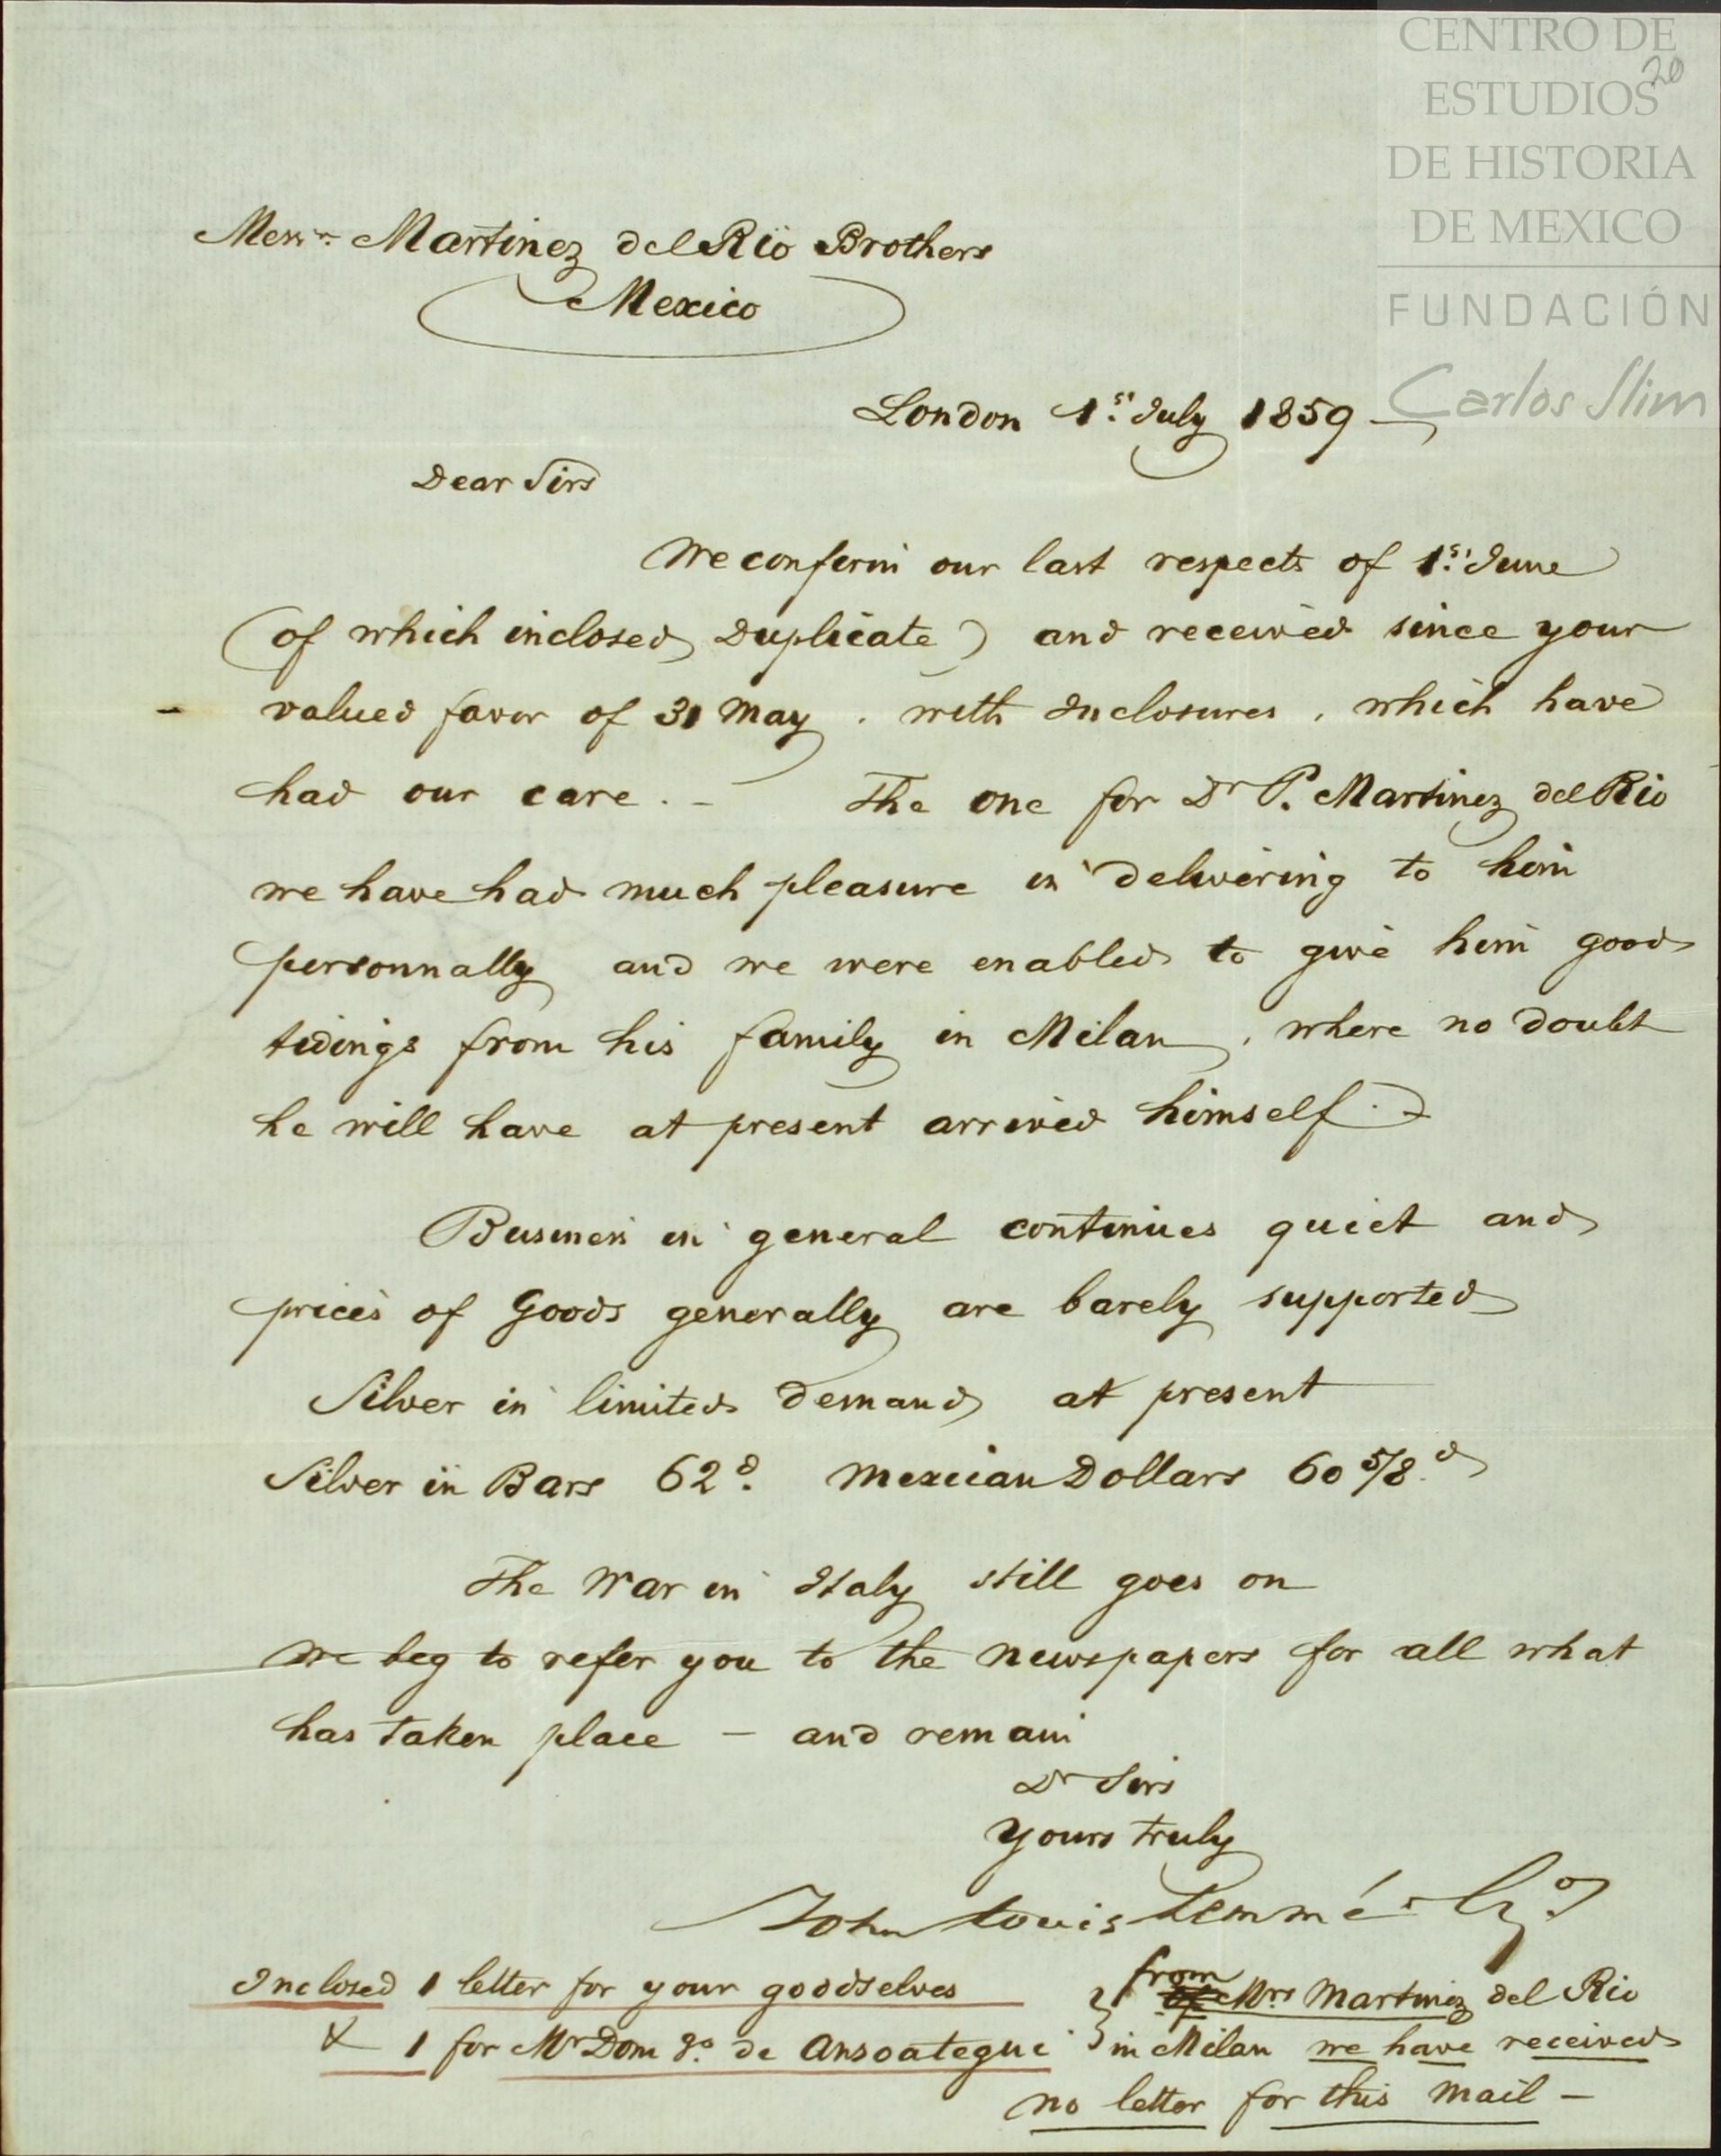 CENTRO DE
ESTUDIOS
20
DE HISTORIA
DE MEXICO
FUNDACIÓN
Carlos Slim
Messrs Martinez del Rio Brothers
Mexico
London 1st July 1859
Dear Sirs
We confirm our last respects of 1st June
(of which inclosed Duplicate) and received since your
valued favor of 31 May, with Inclosures, which have
had our care. – The one for Dr P. Martinez del Rio
we have had much pleasure in delivering to him
personnally and we were enabled to give him good
tidings from his family in Milan, where no doubt
he will have at present arrived himself. –
Business in general continues quiet and
prices of Goods generally are barely supported
Silver in limited demand at present
Silver in Bars 62d. Mexican Dollars 60 5/8.d
The War in Italy still goes on
we beg to refer you to the newspapers for all what
has taken place – and remain
Dr Sirs
Yours truly
John Louis Lemmé & Co.
Inclosed 1 letter for your goodselves
& 1 for Mr Dom Jo. de Ansoategui
from
of Mrs Martinez del Rio
in Milan we have received
no letter for this mail –